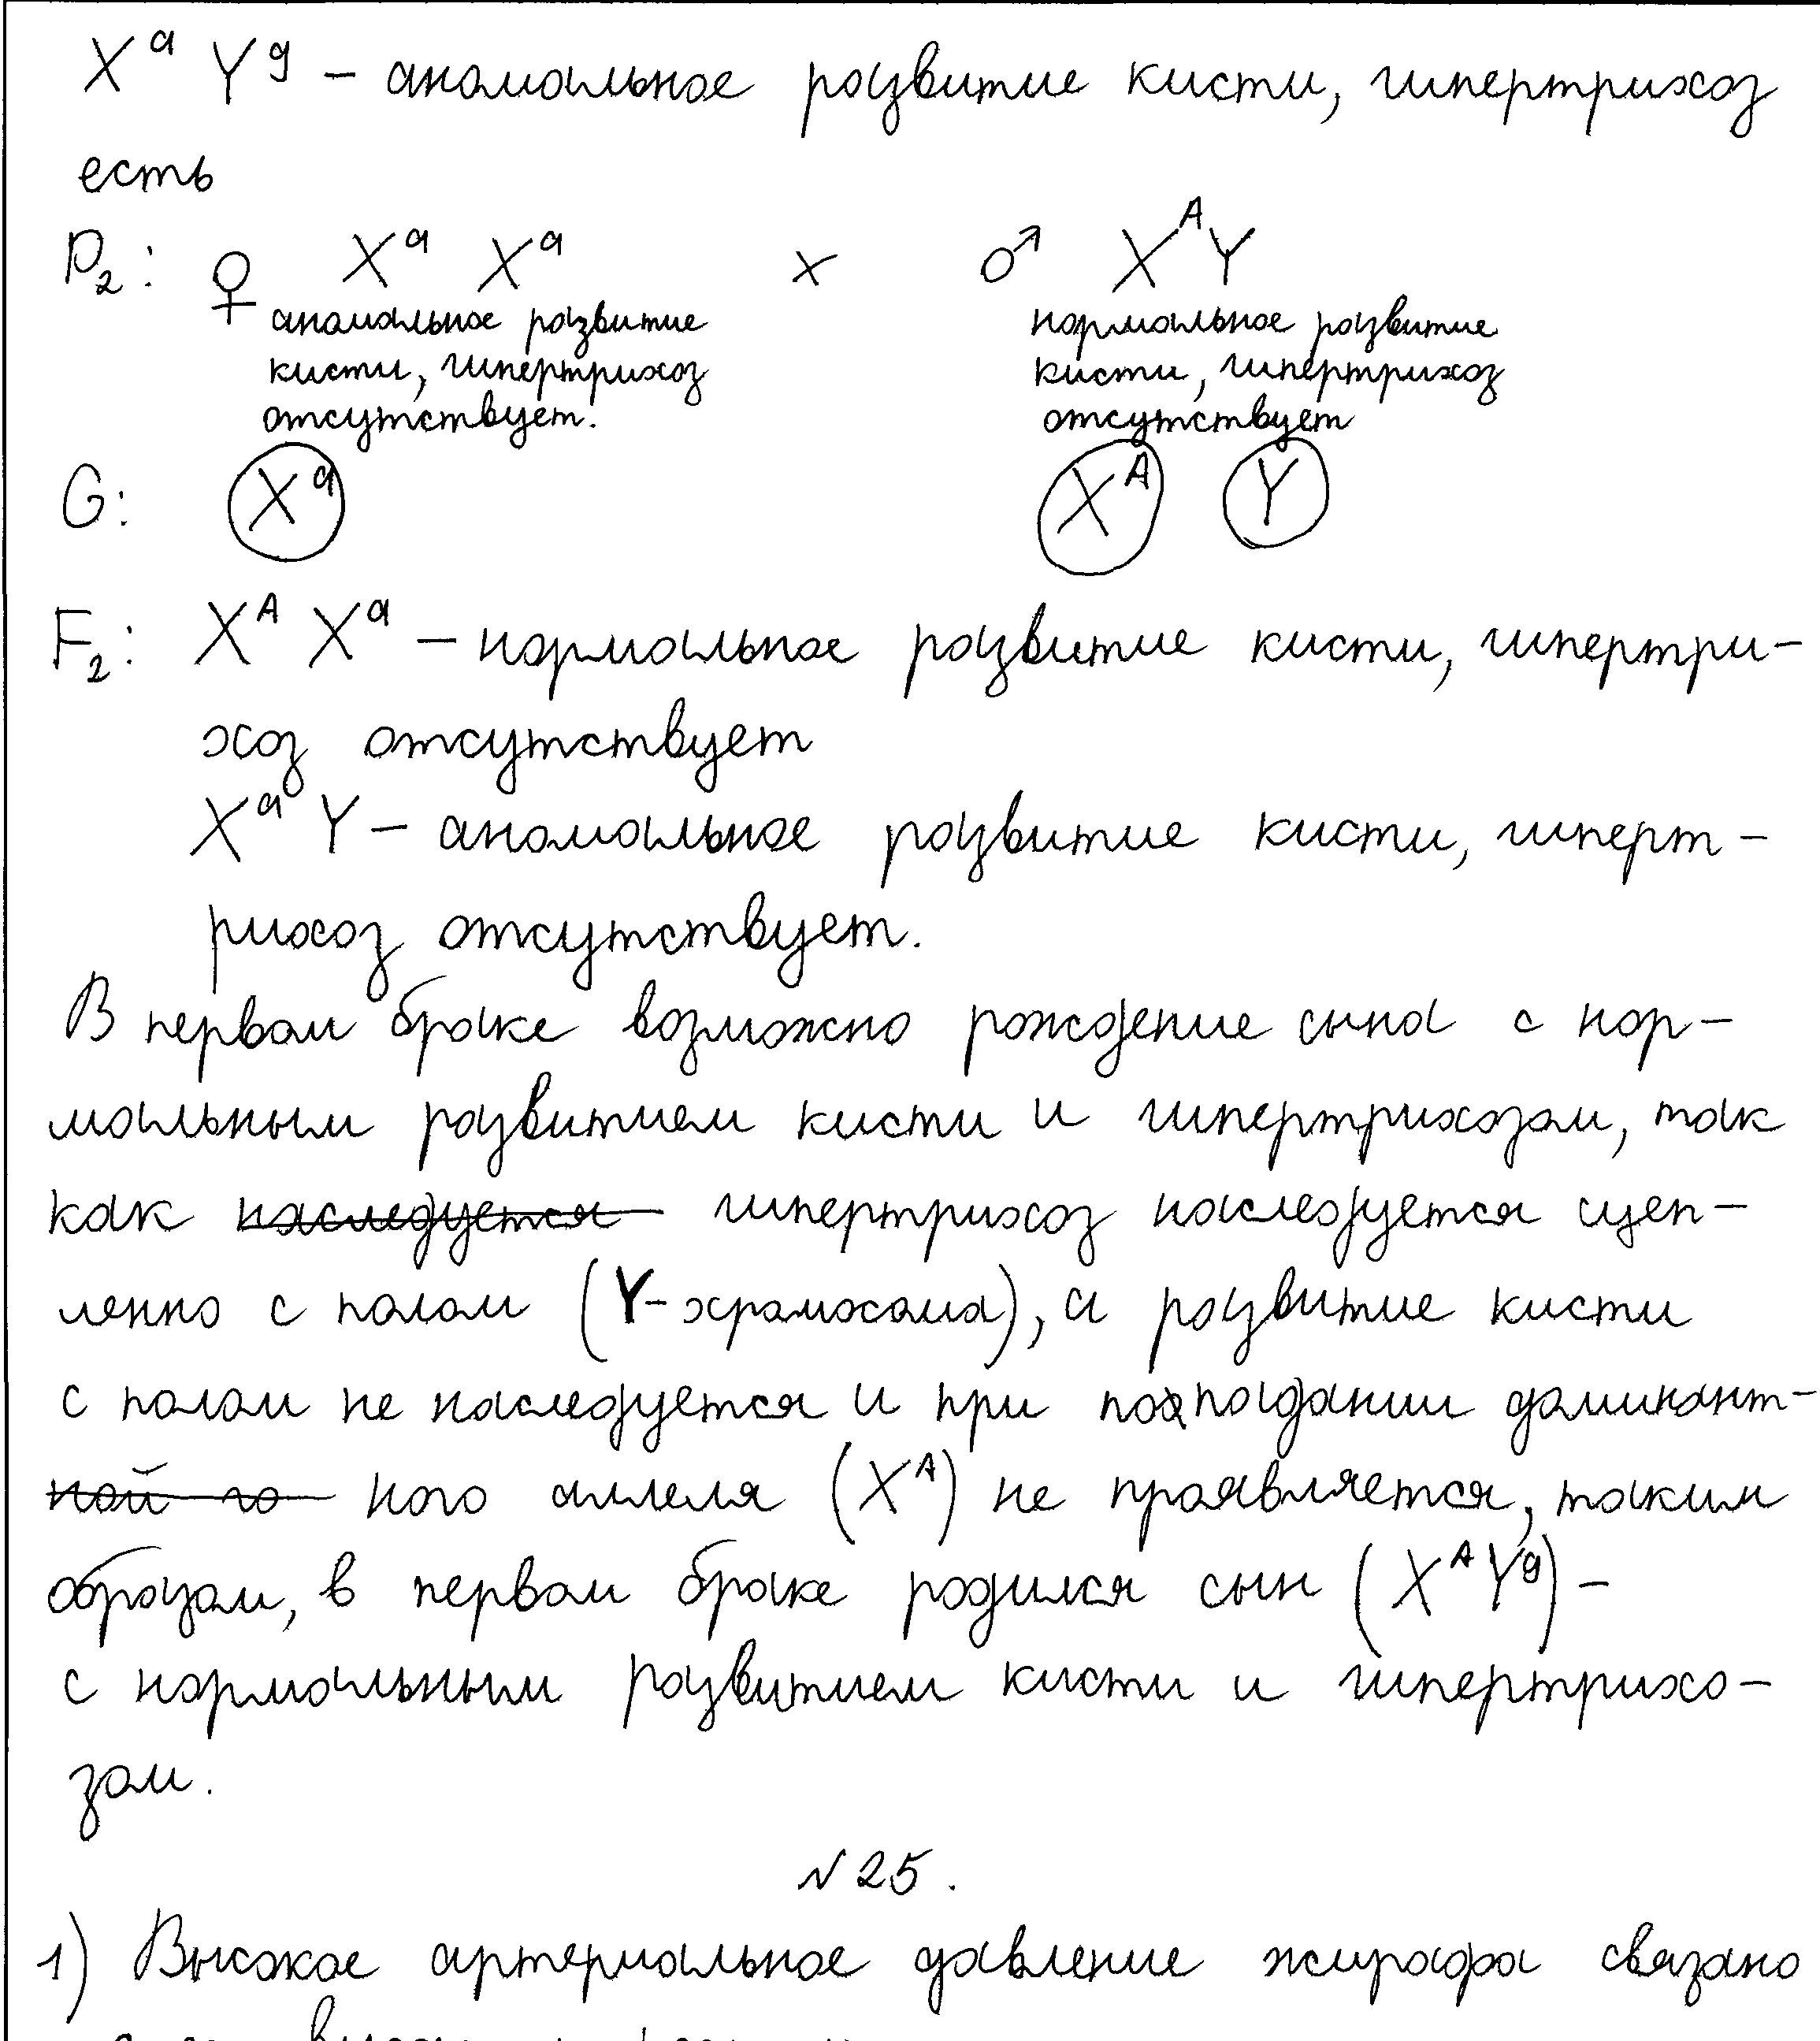 Xᵃ Yᵍ – аномальное развитие кисти, гипертрихоз
есть
P₂: ♀ Xᵃ Xᵃ x ♂ XᴬY
аномальное развитие нормальное развитие
кисти, гипертрихоз кисти, гипертрихоз
отсутствует. отсутствует
G: Xᵃ Xᴬ Y
F₂: Xᴬ Xᵃ – нормальное развитие кисти, гипертри-
хоз отсутствует
Xᵃ Y – аномальное развитие кисти, гиперт-
рихоз отсутствует.
В первом браке возможно рождение сына с нор-
мальным развитием кисти и гипертрихозом, так
как наследуется гипертрихоз наследуется сцеп-
ленно с полом (Y-хромосома), а развитие кисти
с полом не наследуется и при попадании доминант-
ной го ного аллеля (Xᴬ) не проявляется, таким
образом, в первом браке родился сын (XᴬYᵍ) –
с нормальным развитием кисти и гипертрихо-
зом.
№25.
1) Высокое артериальное давление жирафа связано